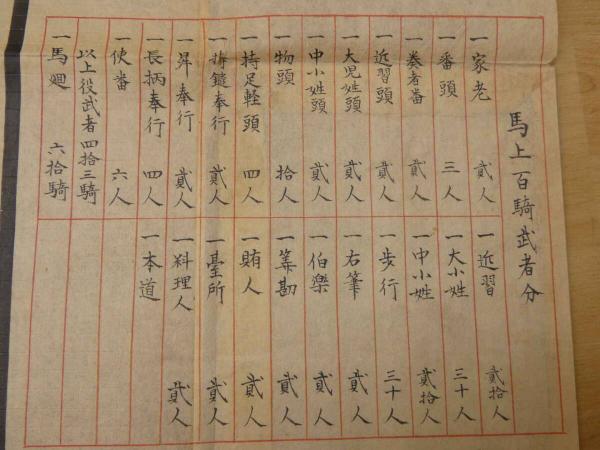 馬上百騎武者分
一家老 貮人
一番頭 三人
一奏者番 貮人
一近習頭 貮人
一大児姓頭 貮人
一中小姓頭 貮人
一物頭 拾人
一持足軽頭 四人
一持鑓奉行 貮人
一舁奉行 貮人
一長柄奉行 四人
一使番 六人
以上役武者四拾三騎
一馬廻 六拾騎
一近習 貮拾人
一大小姓 三十人
一中小姓 貮拾人
一歩行 三十人
一右筆 貮人
一伯樂 貮人
一筭勘 貮人
一賄人 貮人
一臺所 貮人
一料理人 貮人
一本道